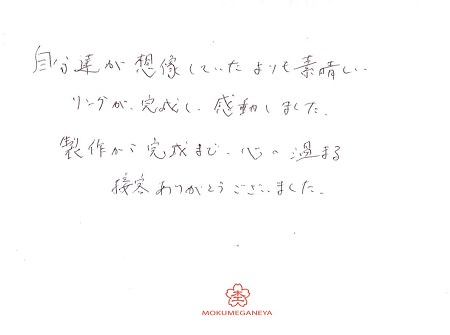 自分達が想像していたよりも素晴しい
リングが、完成し、感動しました。
製作から完成まで、心の温まる
接客ありがとうございました。
MOKUMEGANEYA